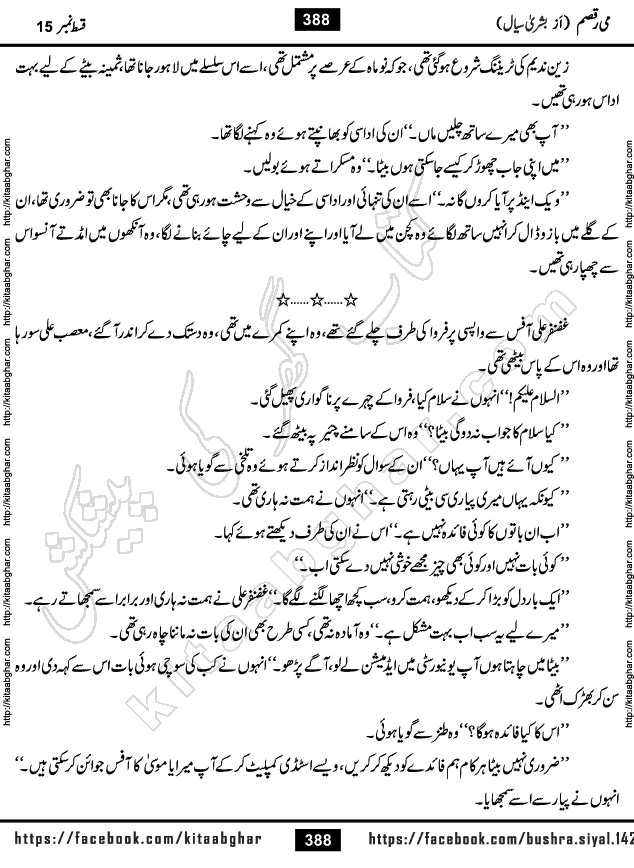 قسط نمبر 15
388
می رقصم (از بشریٰ سیال)
زین ندیم کی ٹریننگ شروع ہوگئی تھی، جو کہ نو ماہ کے عرصے پر مشتمل تھی، اسے اس سلسلے میں لاہور جانا تھا، ثمینہ بیٹے کے لیے بہت
اداس ہو رہی تھیں۔
’’آپ بھی میرے ساتھ چلیں ماں۔‘‘ ان کی اداسی کو بھانپتے ہوئے وہ کہنے لگا تھا۔
’’میں اپنی جاب چھوڑ کر کیسے جاسکتی ہوں بیٹا۔‘‘ وہ مسکراتے ہوئے بولیں۔
’’ویک اینڈ پر آیا کروں گا نہ۔‘‘ اسے ان کی تنہائی اور اداسی کے خیال سے وحشت ہو رہی تھی، مگر اس کا جانا بھی تو ضروری تھا، ان
کے گلے میں بازو ڈال کر انہیں ساتھ لگائے وہ کچن میں لے آیا اور اپنے اور ان کے لیے چائے بنانے لگا، وہ آنکھوں میں امڈتے آنسو اس
سے چھپا رہی تھیں۔
☆......☆......☆
غضنفر علی آفس سے واپسی پر فروا کی طرف چلے گئے تھے، وہ اپنے کمرے میں تھی، وہ دستک دے کر اندر آگئے، معصب علی سو رہا
تھا اور وہ اس کے پاس بیٹھی تھی۔
’’السلام علیکم!‘‘ انہوں نے سلام کیا، فروا کے چہرے پر ناگواری پھیل گئی۔
’’کیا سلام کا جواب نہ دو گی بیٹا؟‘‘ وہ اس کے سامنے چئیر پہ بیٹھ گئے۔
’’کیوں آئے ہیں آپ یہاں؟‘‘ ان کے سوال کو نظر انداز کرتے ہوئے وہ تلخی سے گویا ہوئی۔
’’کیونکہ یہاں میری پیاری سی بیٹی رہتی ہے۔‘‘ انہوں نے ہمت نہ ہاری تھی۔
’’اب ان باتوں کا کوئی فائدہ نہیں ہے۔‘‘ اس نے ان کی طرف دیکھتے ہوئے کہا۔
’’کوئی بات نہیں اور کوئی بھی چیز مجھے خوشی نہیں دے سکتی اب۔‘‘
’’ایک بار دل کو بڑا کر کے دیکھو، ہمت کرو، سب کچھ اچھا لگنے لگے گا۔‘‘ غضنفر علی نے ہمت نہ ہاری اور برابر اسے سمجھاتے رہے۔
’’میرے لیے یہ سب اب بہت مشکل ہے۔‘‘ وہ آمادہ نہ تھی، کسی طرح بھی ان کی بات نہ ماننا چاہ رہی تھی۔
’’بیٹا میں چاہتا ہوں آپ یونیورسٹی میں ایڈمیشن لے لو، آگے پڑھو۔‘‘ انہوں نے کب کی سوچی ہوئی بات اس سے کہہ دی اور وہ
سن کر بھڑک اٹھی۔
’’اس کا کیا فائدہ ہوگا؟‘‘ وہ طنز سے گویا ہوئی۔
’’ضروری نہیں بیٹا ہر کام ہم فائدے کو دیکھ کر کریں، ویسے اسٹڈی کمپلیٹ کر کے آپ میرا یا موسیٰ کا آفس جوائن کر سکتی ہیں۔‘‘
انہوں نے پیار سے اسے سمجھایا۔
http://kitaabghar.com http://kitaabghar.com http://kitaabghar.com http://kitaabghar.com http://kitaabghar.com http://kitaabghar.com
http://kitaabghar.com http://kitaabghar.com http://kitaabghar.com http://kitaabghar.com http://kitaabghar.com http://kitaabghar.com
کتاب گھر کی پیشکش
kitaabghar.com
https://facebook.com/kitaabghar
388
https://facebook.com/bushra.siyal.142